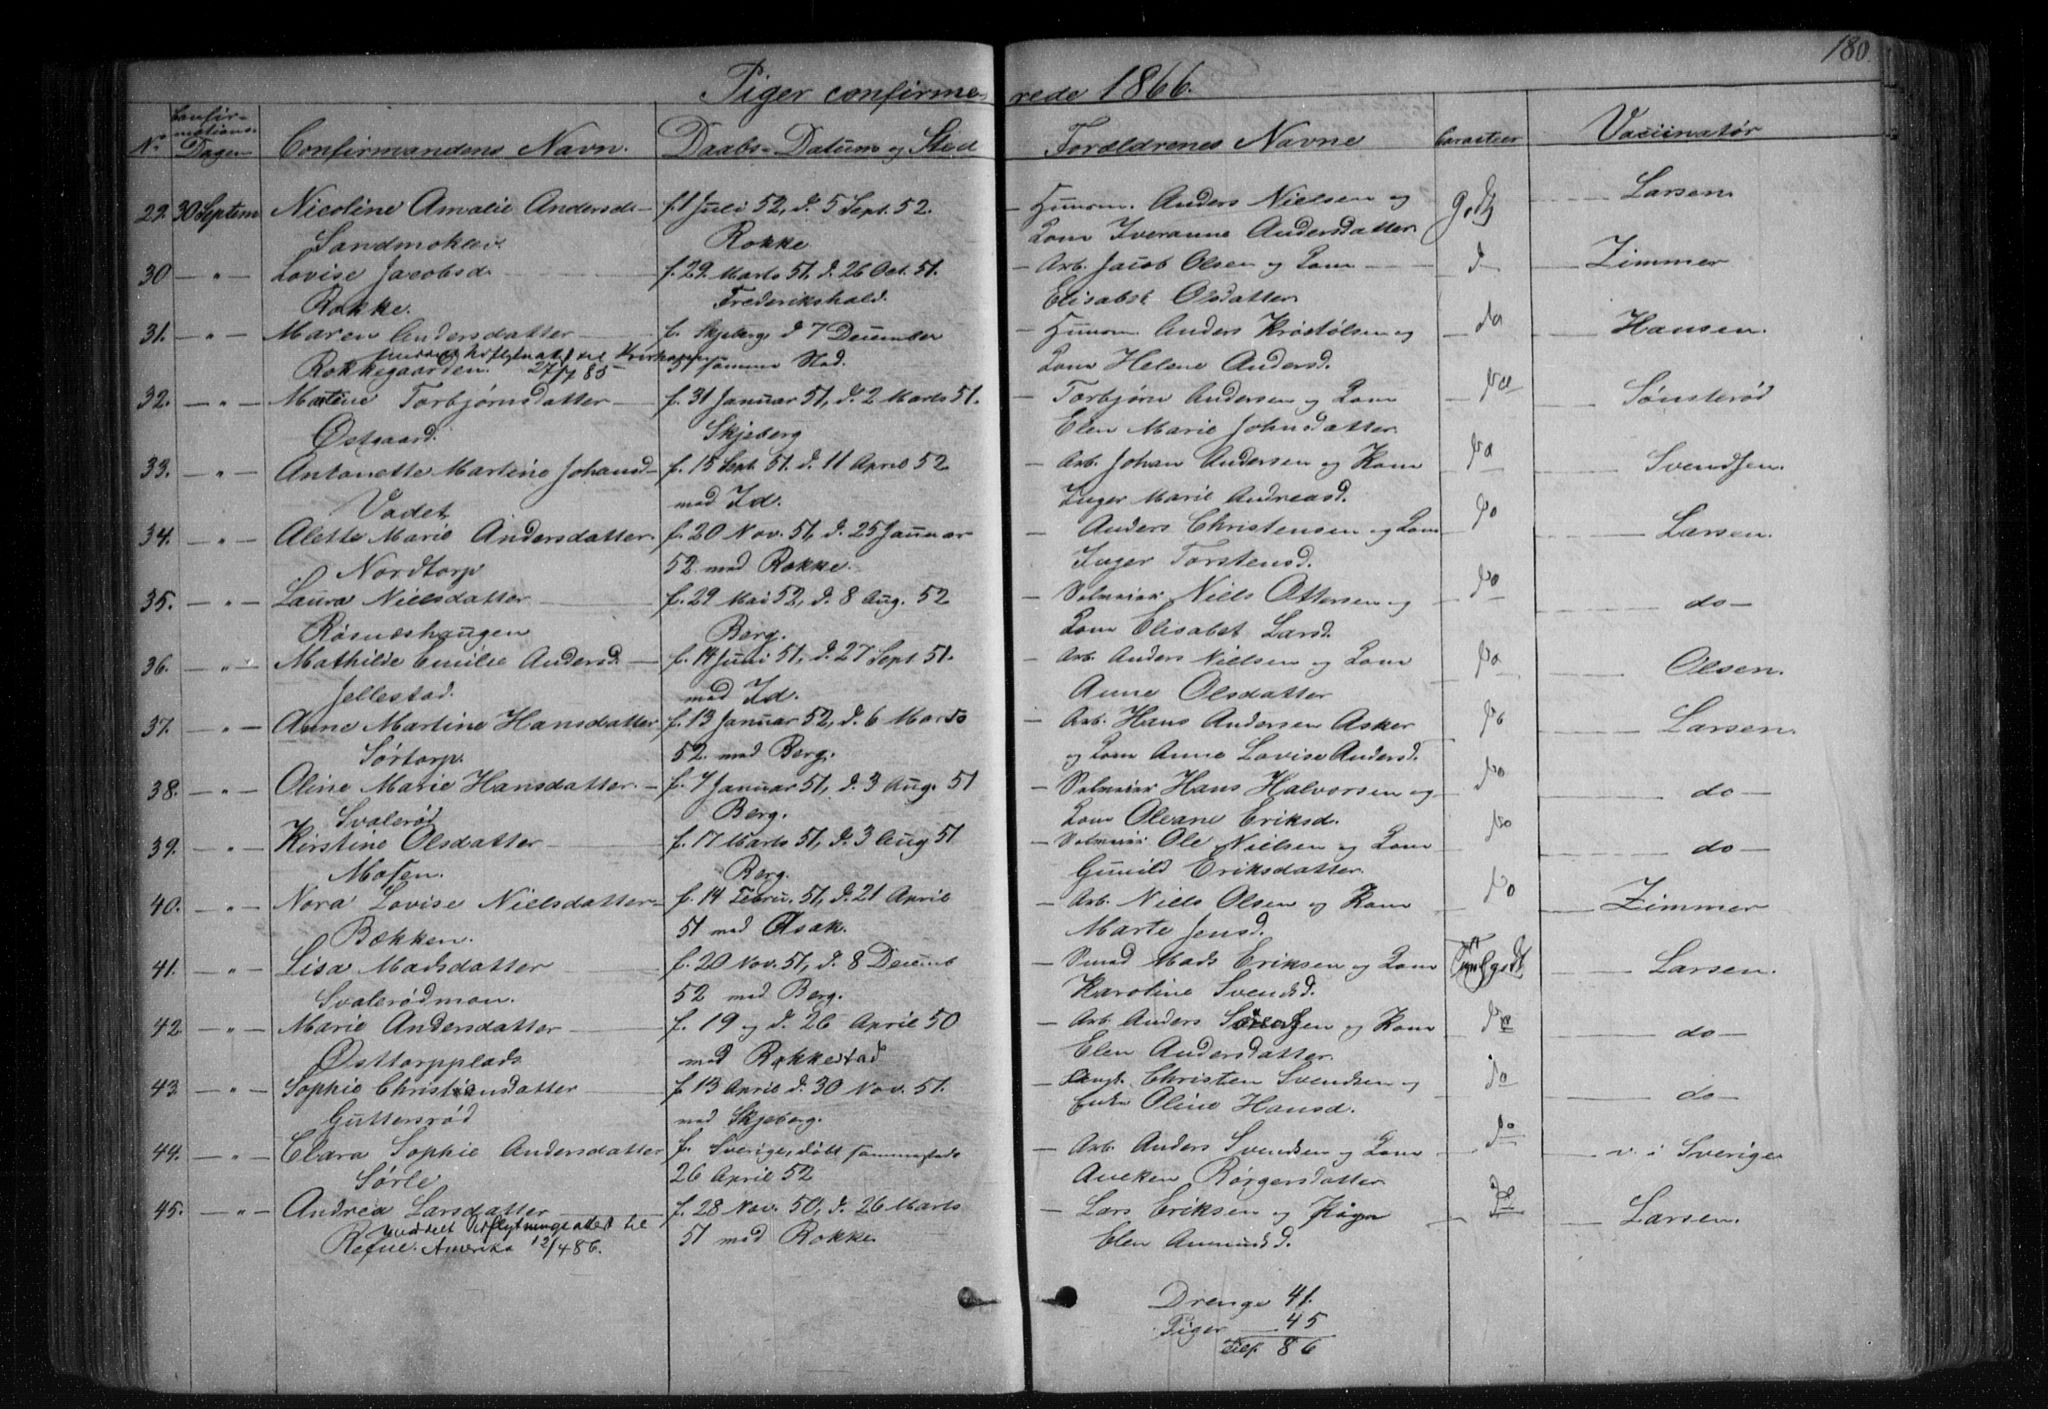 180.
Piger confirmerede 1866.
No Confirmations-Dagen Confirmandens Navn. Daabs-Datum og Sted Forældrenes Navne Caracteer Vaccinatør
29. 30 Septem Nicoline Amalie Andersd. f. 1 Juli 52, d. 5 Sept. 52. Huusm. Anders Nielsen og godt Larsen.
Rokke Iveranne Andersdatter
30 — " — Lovise Jacobsd. f. 29 Marts 51, d. 26 Oct. 51. Arb. Jacob Olsen og d Zimmer
Rokke. Frederikshald. Elisabet Olsdatter
31. — " — Maren Andersdatter f. Skjeberg d 7 December Huusm. Anders og do Hansen.
Rokkegaarden. 27/7 85 51 samme Sted. Helene Andersd.
32. — " — Torbjørnsdatter f. 31 Januar 51, d. 2 Marts 51. Torbjørn Andersen og do Sønsterød
Østgaard. Skjeberg Elen Marie Johnsdatter
33. — " — Antonette Martine Johansd f. 15 Sept. 51. d. 11 April 52 Arb. Johan Andersen og Kone do Svendsen.
Vadet med Id. Inger Marie Andreasd.
34. — " — Alette Marie Andersdatter. f. 20 Nov. 51, d. 25 Januar Anders Christensen og do Larsen.
Nordtorp 52 med Rokke. Inger Torstensd.
35. — " — Laura Nielsdatter f. 29 Mai 52, d. 8 Aug. 52 Selveier Niels Ottersen og do do —
Røsneshaugen Berg. Elisabet Larsd.
36. — " — Mathilde Emilie Andersd. f. 14 Juni 51, d. 27 Sept 51. Arb. Anders Nielsen og do Olsen.
Jellestad. med Id. Anne Olsdatter
37. — " — Anne Martine Hansdatter f. 13 Januar 52, d. 6 Marts Arb. Hans Andersen Asker do Larsen.
Sørtorp. 52 med Berg. og Anne Lovise Andersd.
38. — " — Oline Marie Hansdatter. f. 7 Januar 51, d. 3 Aug. 51 Selveier Hans Halvorsen og do do —
Svalerød Berg. Oleane Eriksd.
39. — " — Kirstine Olsdatter f. 17 Marts 51, d. 3 Aug 51 Selveier Ole Nielsen og do do —
Mosen. Berg. Gunild Eriksdatter.
40. — " — Nora Lovise Nielsdatter f. 14 Febru. 51, d. 21 April Arb. Niels Olsen og Kone do Zimmer
Bækken. 51 med Asak. Marte Jensd.
41. — " — Lisa Madsdatter f. 20 Nov. 51, d. 8 Decemb Smed Mads Eriksen og Larsen.
Svalerødmon. 52 med Berg. Karoline Svendsd.
42 — " — Marie Andersdatter f. 19 og d. 26 April 50 Arb. Anders og Kone do do —
Østtorpplads med Rokkestad Elen Andersdatter.
43. — " — Sophie Christiansdatter f. 13 April d. 30 Nov. 51. Christen Svendsen og do do —
Guttersrød med Skjeberg. Enke Oline Hansd.
44. — " — Clara Sophie Andersdatter f. Sverige, døbt sammesteds Arb. Anders Svendsen og do v. i Sverige
Sørle 26 April 52 Aneken Børgersdatter
45. — " — Andrea Larsdatter f. 28 Nov. 50, d. 26 Marts Lars Eriksen og do Larsen.
meddelt Udflytningsattest til
Amerika 12/4 86. 51 med Rokke. Elen Amundsd.
Drenge 41.
Piger 45
Tils. 86